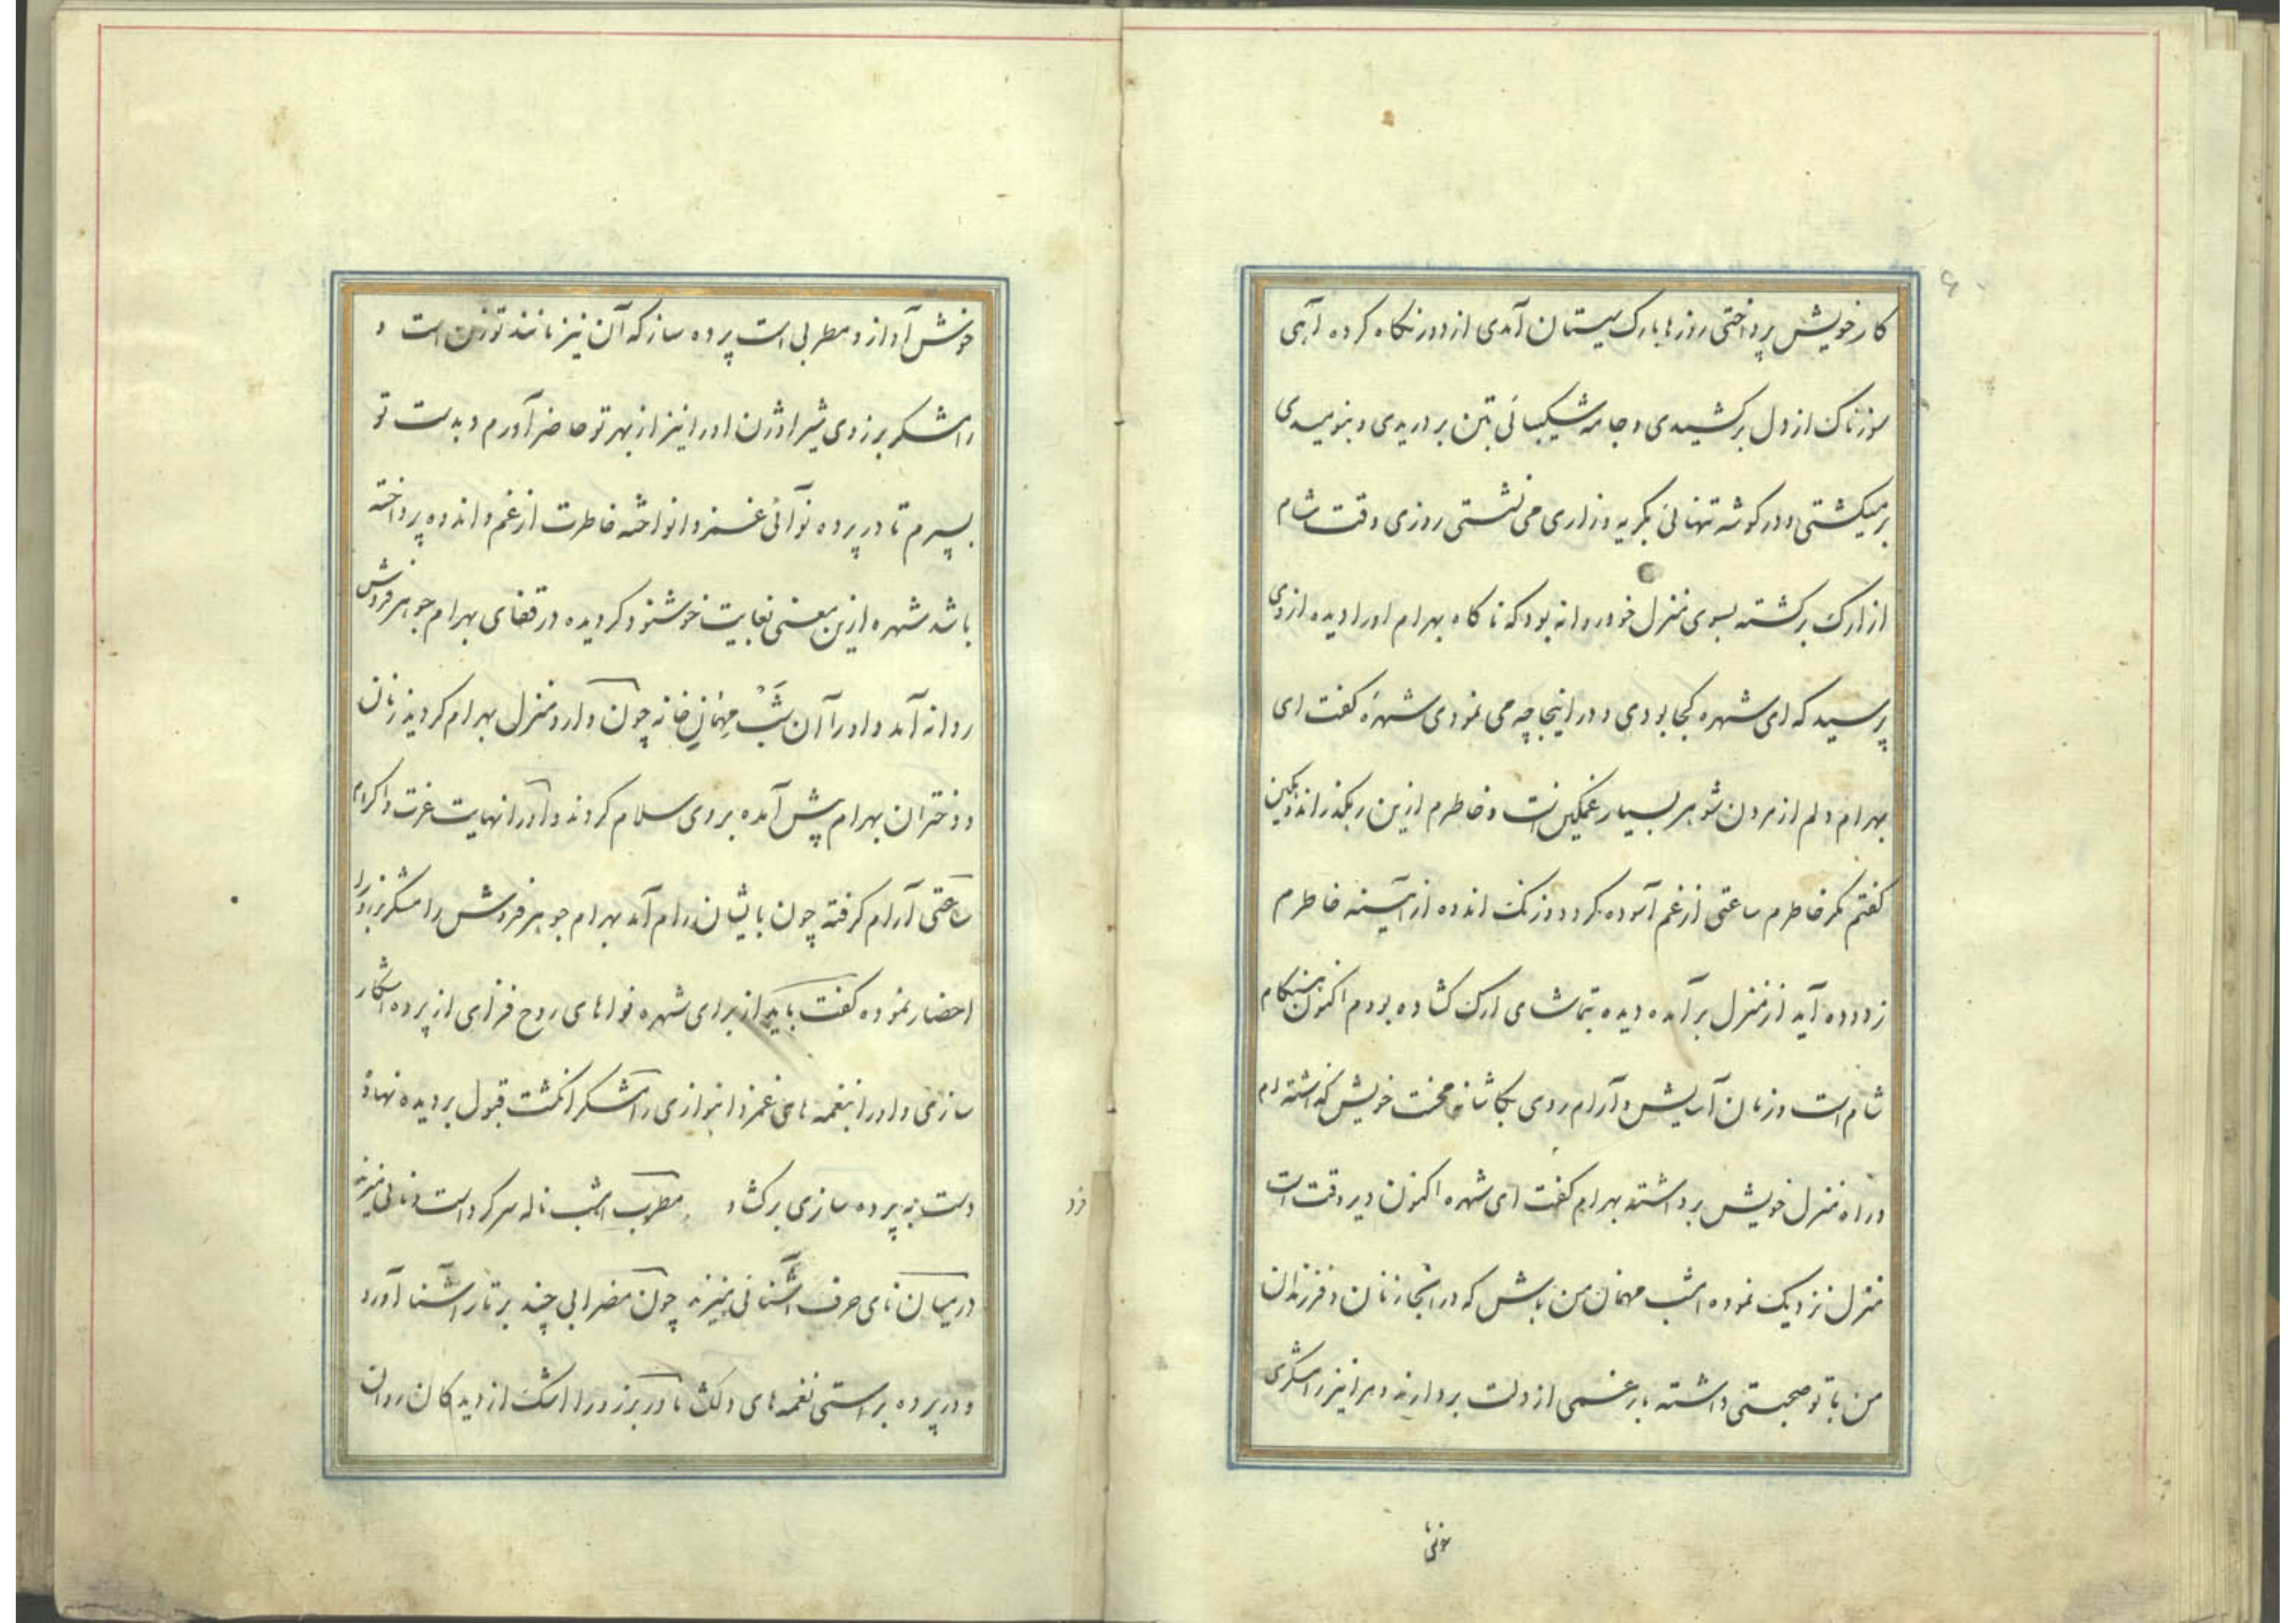 کار خویش پرداختی روزها بارک سیستان آمدی از دور نگاه کرده آهی
سوزناک از دل برکشیدی و جامه شکیبائی بتن بر دریدی و بنومیدی
برمیکشتی و در کوشه تنهائی بکریه و زاری می نشستی روزی وقت شام
از ارک برکشته بسوی منزل خود روانه بود که ناکاه بهرام او را دیده از وی
پرسید که ای شهره کجا بودی و در اینجا چه می نمودی شهره کفت ای
بهرام دلم از مردن شوهر بسیار غمکین است و خاطرم ازین رهکذر اندوهکین
کفتم مکر خاطرم ساعتی از غم آسوده کردد و زنک اندوه از آئینه خاطرم
زدوده آید از منزل برآمده دیده بتماشای ارک کشاده بودم اکنون هنکام
شام است و زمان آسایش و آرام روی بکاشانه محنت خویش کذاشته ام
و راه منزل خویش برداشته بهرام کفت ای شهره اکنون دیر وقت است
منزل نزدیک نموده امشب مهمان من باش که در آنجا زنان و فرزندان
من با تو صحبتی داشته بار غمی از دلت بردارند و مرا نیز رامشکری
خوش آواز و مطربی است پرده ساز که آن نیز مانند تو زن است و
رامشکر برزوی شیر اوژن او را نیز از بهر تو حاضر آورم و بدست تو
بسپرم تا در پرده نوائی غمزدا نواخته خاطرت از غم و اندوه پرداخته
باشد شهره ازین معنی بغایت خوشنود کردیده در قفای بهرام جوهرفروش
روانه آمد و او را آن شب مهمان خانه چون وارد منزل بهرام کردید زنان
و دختران بهرام پیش آمده بر وی سلام کردند و او را نهایت عزت و اکرام
ساعتی آرام کرفته چون با ایشان رام آمد بهرام جوهرفروش رامشکر برزو را
احضار نموده کفت باید از برای شهره نواهای روح فزای از پرده آشکار
سازی و او را بنغمه های غمزدا بنوازی رامشکر انکشت قبول بر دیده نهاد
دست به پرده سازی برکشاد مطرب امشب ناله سر کرد است و نائی میزند
در میان نای حرف آشنائی میزند چون مضرابی چند بر تار آشنا آورد
و در پرده براستی نغمه های دلکش نا آور برزو را اشک از دیدکان روان